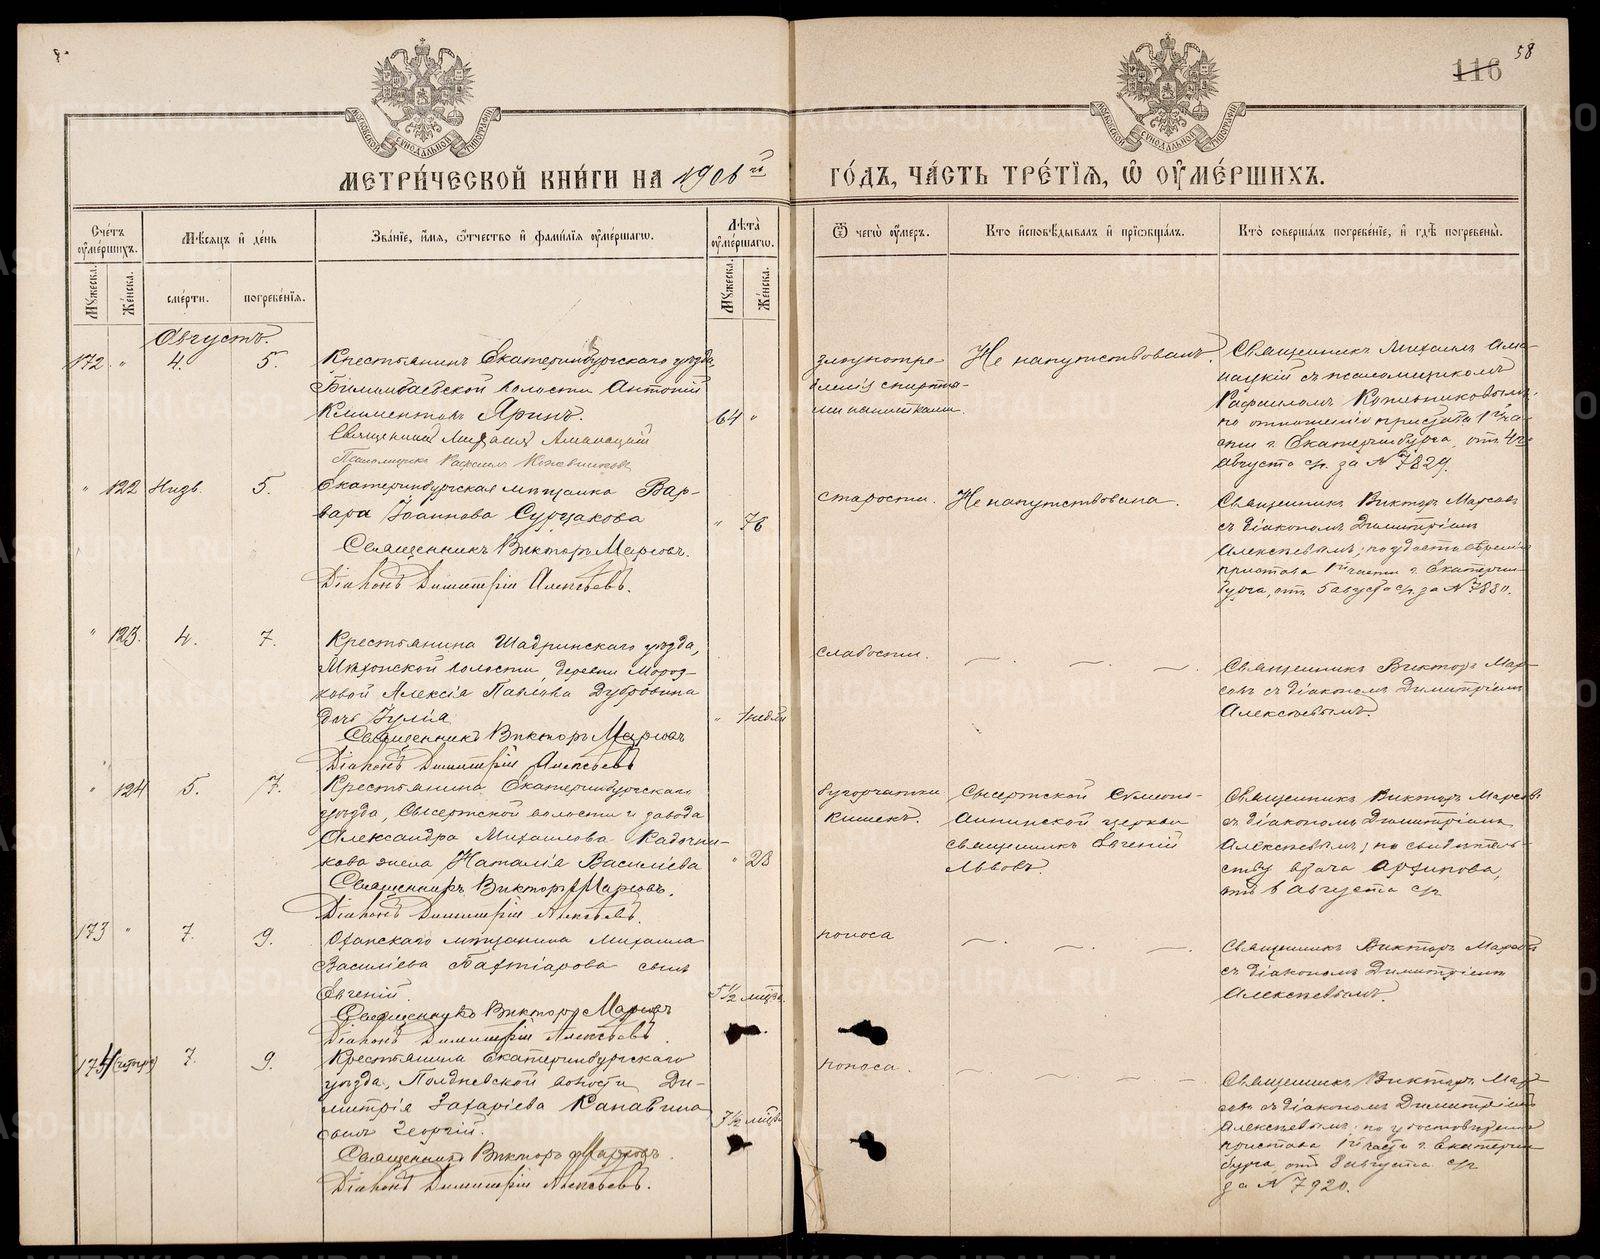 58
116
МЕТРИ́ЧЕСКОЙ КНИ́ГИ НА 1906й ГО́ДЪ, ЧА́СТЬ ТРЕ́ТІѦ, Ѡ ОУМЕ́РШИХЪ.
Сче́тъ оумершихъ.
Мѣсяцъ и де́нь
Зва́нїе, и́мя, о́тчество и фами́лїя оуме́ршагѡ.
Лѣта̀ оуме́ршагѡ.
Ѿ чегѡ̀ оу́меръ.
Кто̀ исповѣ́дывалъ и прїѡбща́лъ.
Кто̀ соверша́лъ погребе́нїе, и гдѣ̀ погребены̀.
Му́жеска.
Же́нска.
сме́рти.
погребе́нїя.
Му́жеска.
Же́нска.
Августъ.
172 " 4. 5.
Крестьянинъ Екатеринбургскаго уѣзда,
Билимбаевской волости Антоній
Климентовъ Яринъ.
Священникъ Михаилъ
Псаломщикъ Рафаилъ Кожевниковъ
64 "
злоупотре-
бленія спиртны-
ми напитками.
Не напутствованъ.
Священникъ Михаилъ
съ псаломщикомъ
Рафаиломъ Кожевниковымъ,
по отношенію пристава 1й ча-
сти г. Екатеринбурга, отъ 4го
августа с/г. за № 7829.
" 122 5.
Екатеринбургская мѣщанка Вар-
вара Іоаннова
Священникъ Викторъ
Діаконъ Димитрій Алексѣевъ.
" 76
старости.
Не напутствована.
Священникъ Викторъ
съ діакономъ Димитріемъ
Алексѣевымъ, по удостовѣренію
пристава 1й части г. Екатерин-
бурга, отъ 5 августа с/г. за № 7880.
" 123. 4. 7.
Крестьянина Шадринскаго уѣзда,
Мехонской волости, деревни
Алексія Павлова Дубровина
дочь Іулія
Священникъ Викторъ
Діаконъ Димитрій Алексѣевъ
"
слабости.
Священникъ Викторъ
съ діакономъ Димитріемъ
Алексѣевымъ.
" 124 5. 7.
Крестьянина Екатеринбургскаго
уѣзда, Сысертской волости и завода
Александра Михаилова
жена Наталія Василіева
Священникъ Викторъ
Діаконъ Димитрій Алексѣевъ.
" 28
бугорчатки
кишекъ.
Сысертской Симеоно-
Аннинской церкви
священникъ Евгеній
Львовъ.
Священникъ Викторъ
съ діакономъ Димитріемъ
Алексѣевымъ; по свидѣтель-
ству врача Архипова,
отъ 6 августа с/г.
173 " 7. 9.
Оханскаго мѣщанина Михаила
Василіева Бахтіарова сынъ
Евгеній.
Священникъ Викторъ
Діаконъ Димитрій Алексѣевъ.
5 1/2 мѣсяц.
поноса
Священникъ Викторъ
съ діакономъ Димитріемъ
Алексѣевымъ.
174 (четыре) 7. 9.
Крестьянина Екатеринбургскаго
уѣзда, Полдневской волости, Ди-
митрія Захаріева Канавина
сынъ Георгій.
Священникъ Викторъ
Діаконъ Димитрій Алексѣевъ.
7 1/2 мѣсяц.
поноса.
Священникъ Викторъ
съ діакономъ Димитріемъ
Алексѣевымъ; по удостовѣренію
пристава 1й части г. Екатерин-
бурга, отъ 8 августа с/г.
за № 7920.